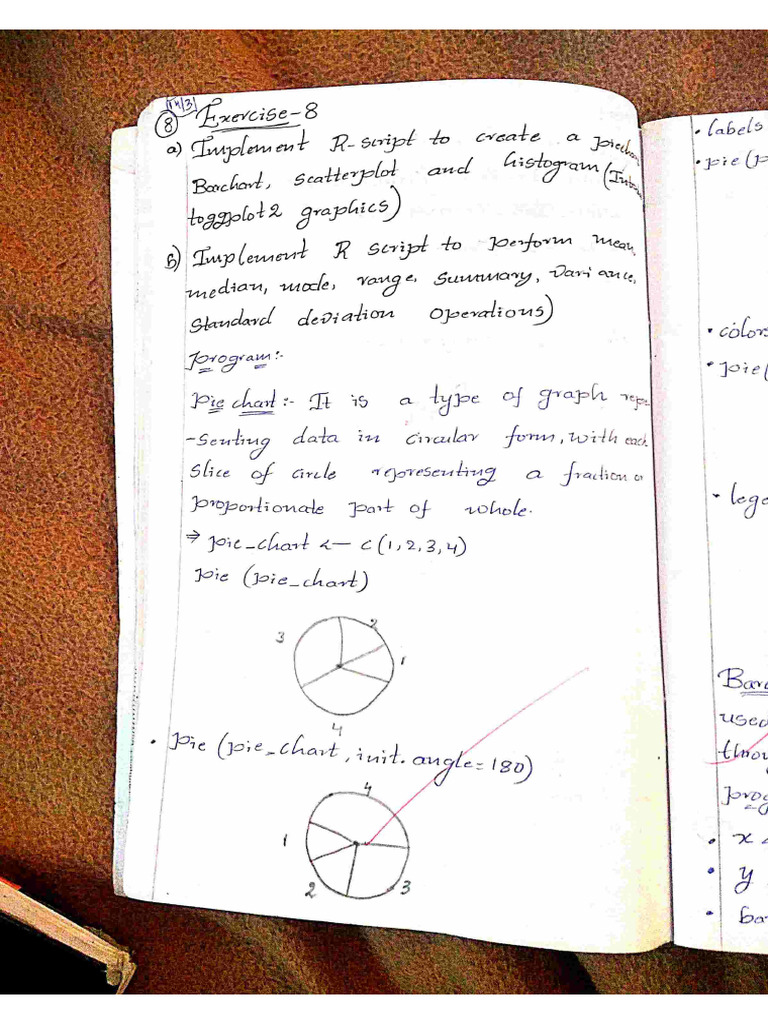 8 Exercise-8
a) Implement R-script to create a piechart
Barchart, scatterplot and histogram (Intro
toggplot2 graphics)
b) Implement R script to perform mean,
median, mode, range, Summary, Variance,
Standard deviation Operations)
program:-
Pie chart:- It is a type of graph repre
-senting data in circular form, with each
slice of circle representing a fraction or
proportionate part of whole.
⇒ pie_chart <- c(1,2,3,4)
pie (pie_chart)
3 2
1
4
• pie (pie_chart, init.angle=180)
4
1
2 3
• labels
• pie(p
• colors
• pie(
• lege
Barc
used
throu
prog
• x <
• y
• ba